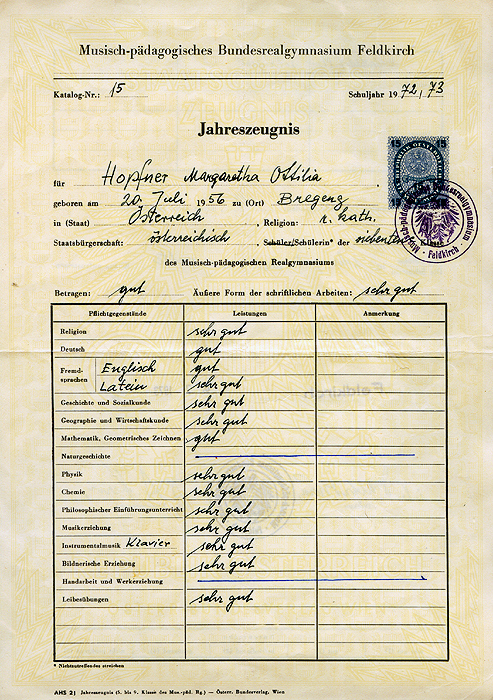 Musisch-pädagogisches Bundesrealgymnasium Feldkirch
Katalog-Nr.: 15 Schuljahr 1972/73
Jahreszeugnis
15 15
für Hopfner Margaretha Ottilia
geboren am 20. Juli 1956 zu (Ort) Bregenz
in (Staat) Österreich, Religion: r. kath.
Staatsbürgerschaft: österreichisch, Schüler/Schülerin* der siebenten Klasse
des Musisch-pädagogischen Realgymnasiums
Feldkirch
Betragen: gut Äußere Form der schriftlichen Arbeiten: sehr gut
Pflichtgegenstände Leistungen Anmerkung
Religion sehr gut
Deutsch gut
Fremdsprachen Englisch gut
Latein sehr gut
Geschichte und Sozialkunde sehr gut
Geographie und Wirtschaftskunde sehr gut
Mathematik, Geometrisches Zeichnen gut
Naturgeschichte
Physik sehr gut
Chemie sehr gut
Philosophischer Einführungsunterricht sehr gut
Musikerziehung sehr gut
Instrumentalmusik Klavier sehr gut
Bildnerische Erziehung sehr gut
Handarbeit und Werkerziehung
Leibesübungen sehr gut
* Nichtzutreffendes streichen
AHS 21 Jahreszeugnis (5. bis 9. Klasse des Mus.-päd. Rg.) — Österr. Bundesverlag, Wien